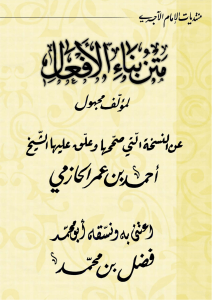 منتديات الإمام الآجري
متن بناء الأفعال
لمؤلف مجهول
عن النسخة التي صححها وعلق عليها الشيخ
أحمد بن عمر الحازمي
اعتنى به ونسقه أبو محمد
فضل بن محمد